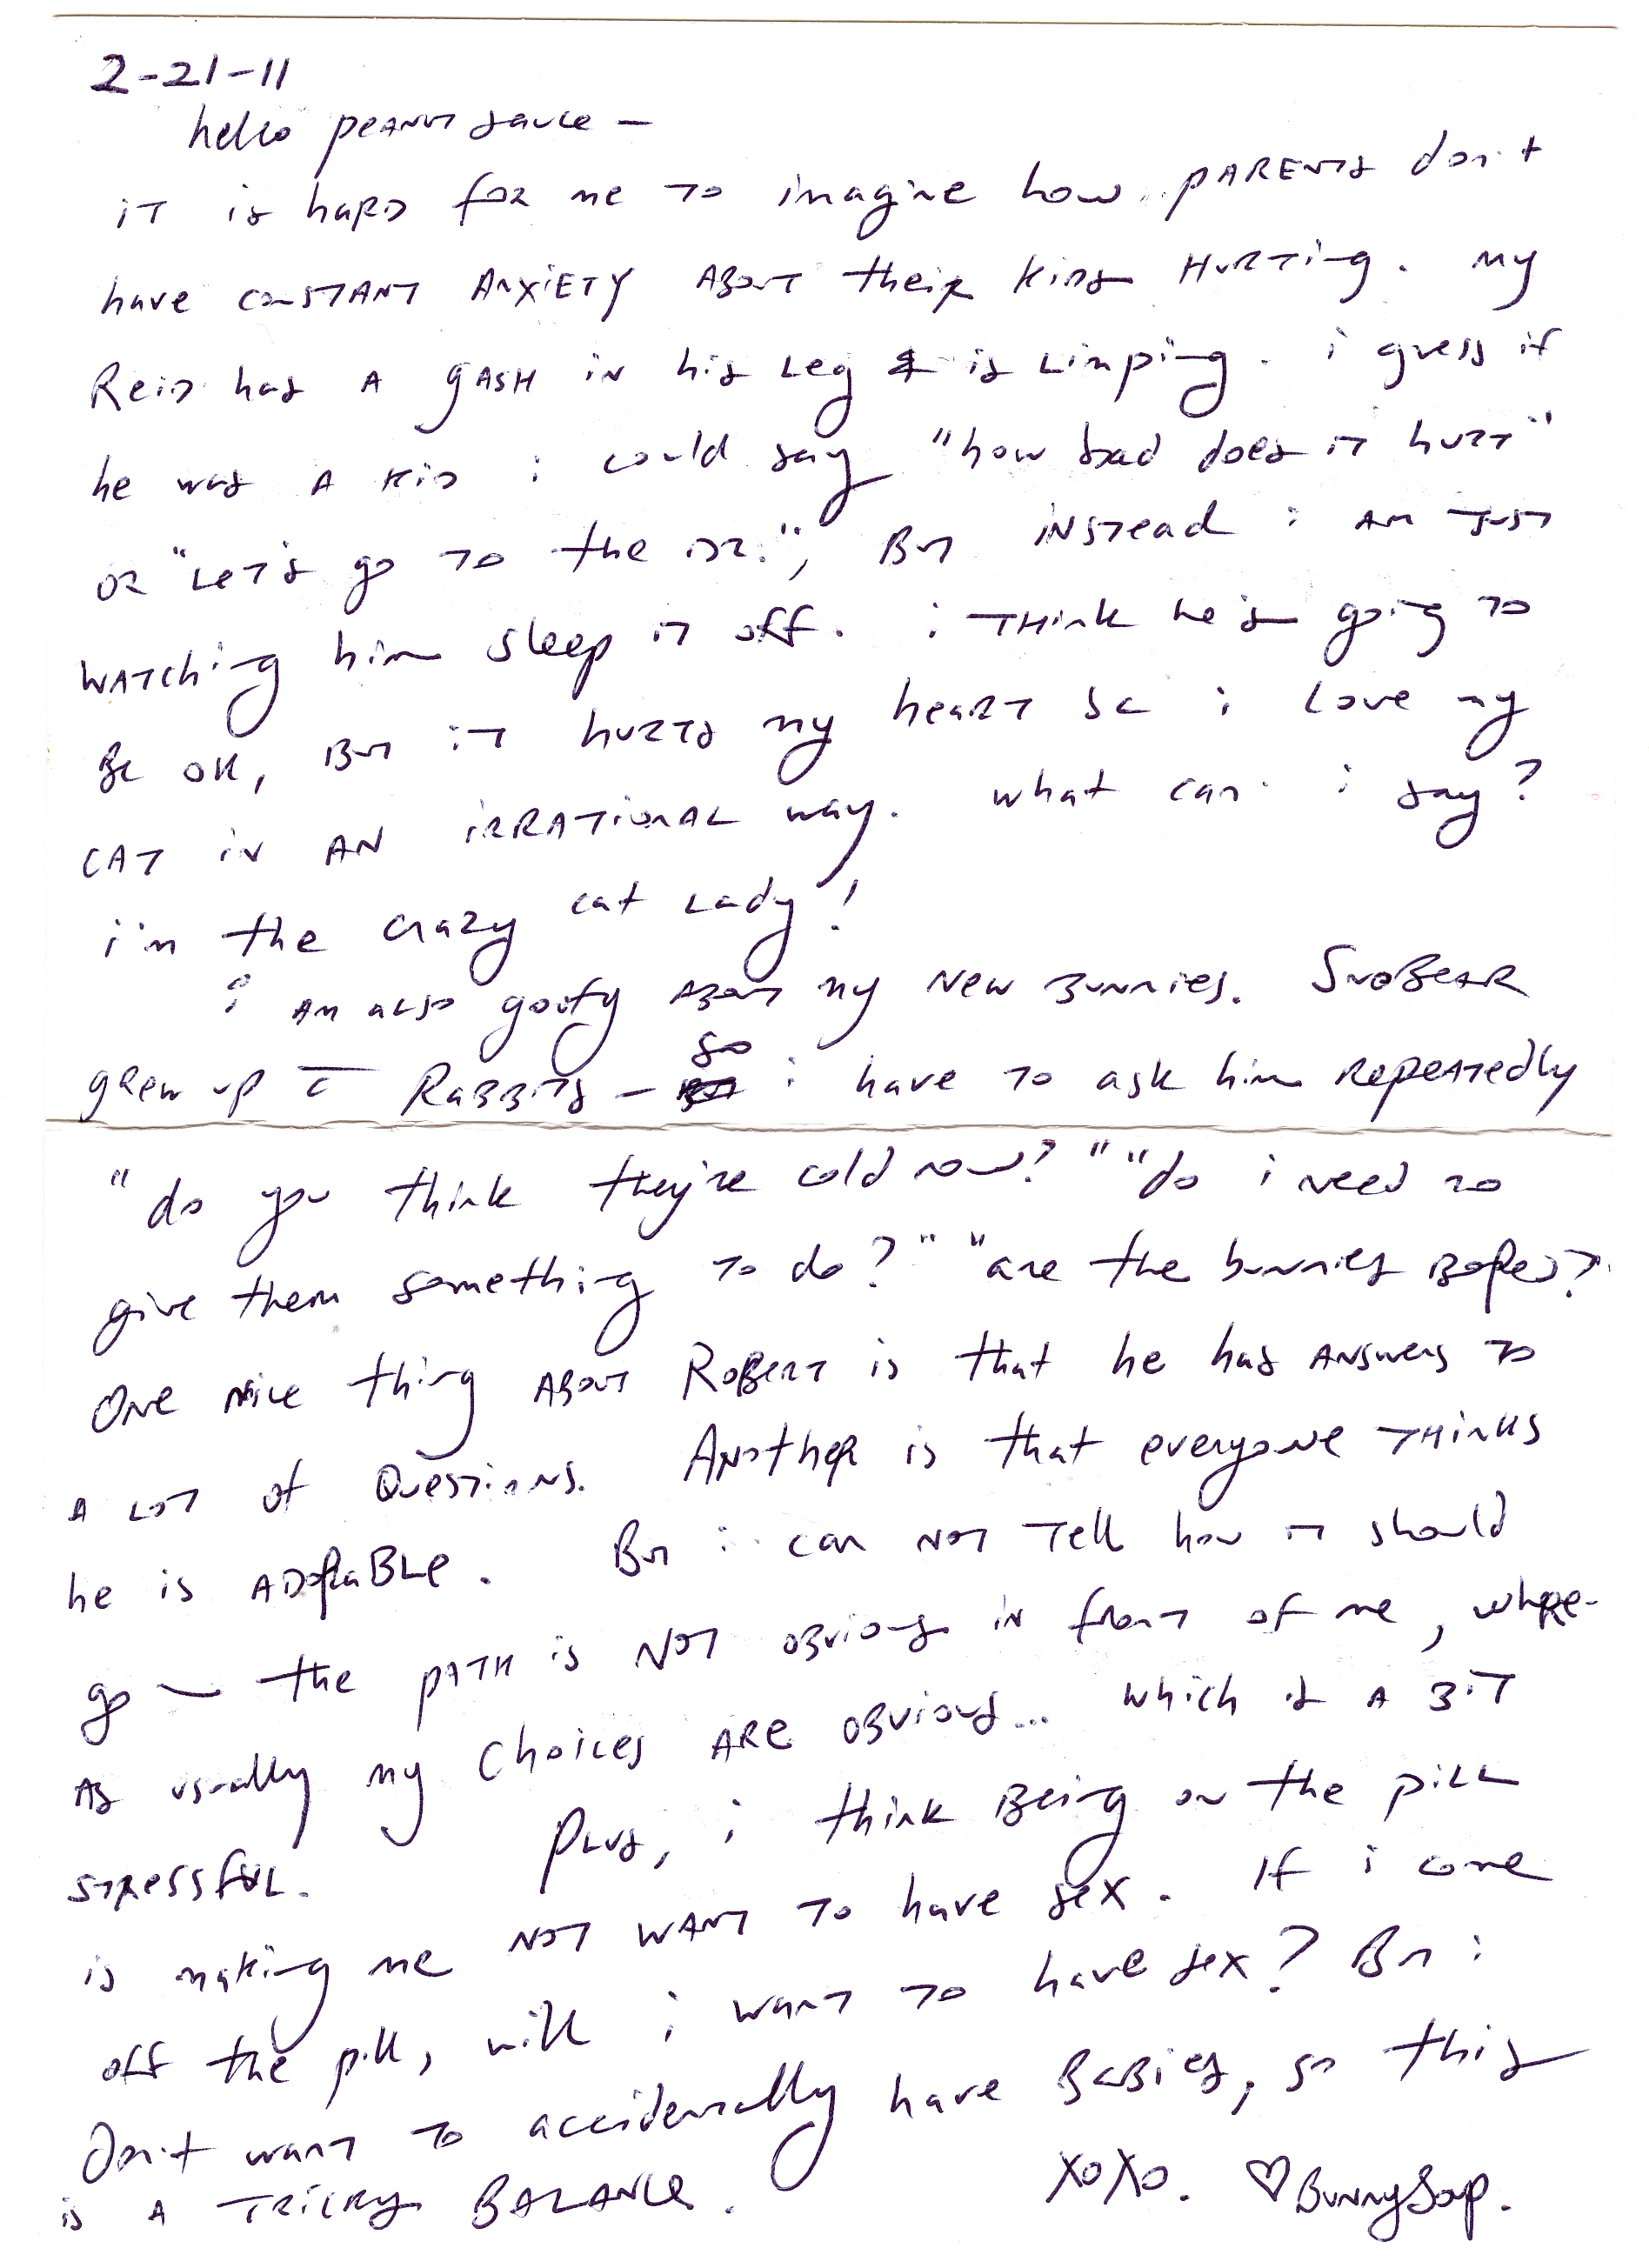 2-21-11
hello peanut sauce —
it is hard for me to imagine how parents don't
have constant anxiety about their kids hurting. my
Reid has a gash in his leg & is limping. i guess if
he was a kid i could say "how bad does it hurt"
or "let's go to the dr.", But instead i am just
watching him sleep it off. i think he's going to
Be ok, But it hurts my heart bc i love my
cat in an irrational way. what can i say?
i'm the crazy cat lady!
i am also goofy about my new bunnies. SnoBear
grew up c̄ Rabbits — so i have to ask him repeatedly
"do you think they're cold now?" "do i need to
give them something to do?" "are the bunnies bored?
One nice thing about Robert is that he has answers to
a lot of questions. Another is that everyone thinks
he is adorable. But i can not tell how it should
go — the path is not obvious in front of me, where-
as usually my choices are obvious... which is a bit
stressful. Plus, i think being on the pill
is making me not want to have sex. If i come
off the pill, will i want to have sex? But i
Don't want to accidentally have Babies, so this
is a tricky balance. xoxo. ♡BunnySoup.